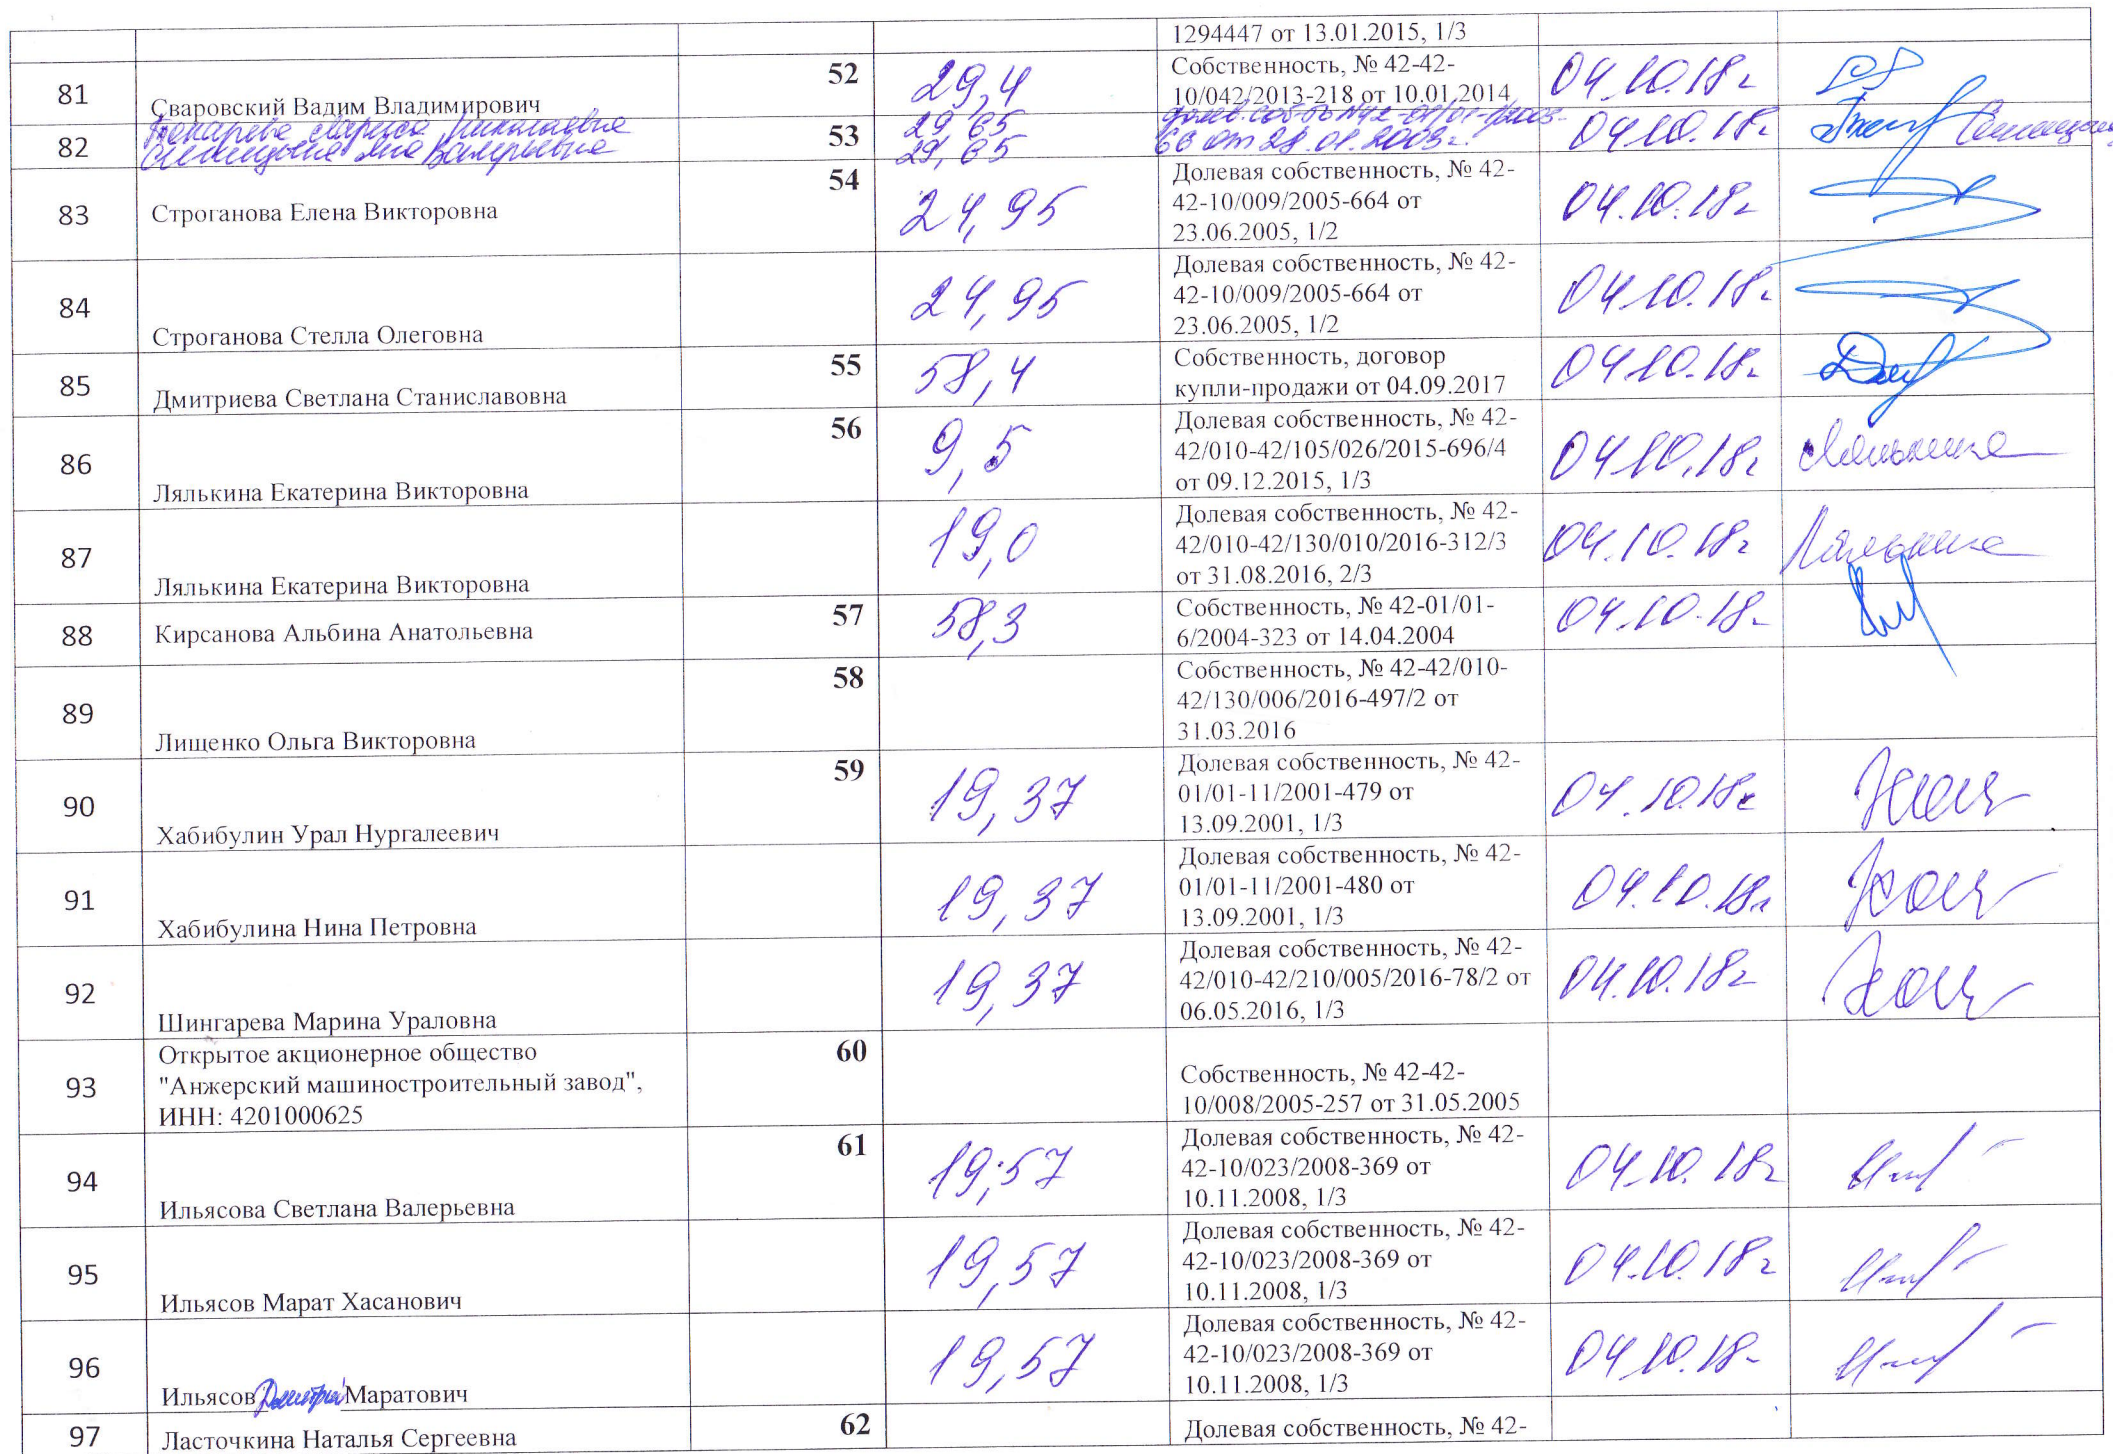 1294447 от 13.01.2015, 1/3
81
Сваровский Вадим Владимирович
52
29,4
Собственность, № 42-42-
10/042/2013-218 от 10.01.2014
04.10.18г
82
Лариса Николаевна
Яна Валерьевна
53
29,65
29,65
долев. соб-ть №42-01/01-1/2003-
66 от 28.01.2003г.
04.10.18г.
83
Строганова Елена Викторовна
54
24,95
Долевая собственность, № 42-
42-10/009/2005-664 от
23.06.2005, 1/2
04.10.18г
84
Строганова Стелла Олеговна
24,95
Долевая собственность, № 42-
42-10/009/2005-664 от
23.06.2005, 1/2
04.10.18г
85
Дмитриева Светлана Станиславовна
55
58,4
Собственность, договор
купли-продажи от 04.09.2017
04.10.18г
86
Лялькина Екатерина Викторовна
56
9,5
Долевая собственность, № 42-
42/010-42/105/026/2015-696/4
от 09.12.2015, 1/3
04.10.18г
Лялькина
87
Лялькина Екатерина Викторовна
19,0
Долевая собственность, № 42-
42/010-42/130/010/2016-312/3
от 31.08.2016, 2/3
04.10.18г
Лялькина
88
Кирсанова Альбина Анатольевна
57
58,3
Собственность, № 42-01/01-
6/2004-323 от 14.04.2004
04.10.18г
89
Лищенко Ольга Викторовна
58
Собственность, № 42-42/010-
42/130/006/2016-497/2 от
31.03.2016
90
Хабибулин Урал Нургалеевич
59
19,37
Долевая собственность, № 42-
01/01-11/2001-479 от
13.09.2001, 1/3
04.10.18г
91
Хабибулина Нина Петровна
19,37
Долевая собственность, № 42-
01/01-11/2001-480 от
13.09.2001, 1/3
04.10.18г
92
Шингарева Марина Ураловна
19,37
Долевая собственность, № 42-
42/010-42/210/005/2016-78/2 от
06.05.2016, 1/3
04.10.18г
93
Открытое акционерное общество
"Анжерский машиностроительный завод",
ИНН: 4201000625
60
Собственность, № 42-42-
10/008/2005-257 от 31.05.2005
94
Ильясова Светлана Валерьевна
61
19,57
Долевая собственность, № 42-
42-10/023/2008-369 от
10.11.2008, 1/3
04.10.18г
95
Ильясов Марат Хасанович
19,57
Долевая собственность, № 42-
42-10/023/2008-369 от
10.11.2008, 1/3
04.10.18г
96
Ильясов Дмитрий Маратович
19,57
Долевая собственность, № 42-
42-10/023/2008-369 от
10.11.2008, 1/3
04.10.18г
97
Ласточкина Наталья Сергеевна
62
Долевая собственность, № 42-